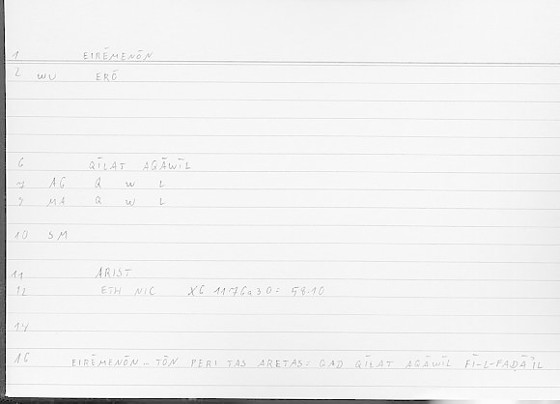 1 EIRĒMENŌN
2 WU ERŌ
6 QĪLAT AQĀWĪL
7 AG Q W L
9 MA Q W L
10 SM
11 ARIST
12 ETH NIC X6 1176a30 = 58.10
14
16 EIRĒMENŌN - TŌN PERI TAS ARETAS = QAD QĪLAT AQĀWĪL FĪ-L-FAḌĀʾIL